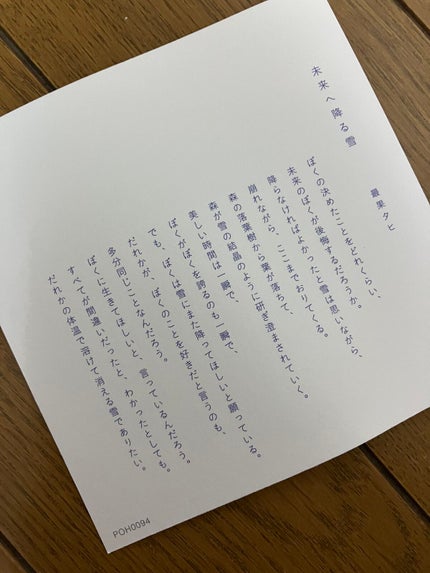 未来へ降る雪
最果タヒ
ぼくの決めたことをどれくらい、
未来のぼくが後悔するだろうか。
降らなければよかったと雪は思いながら、
崩れながら、ここまでおりてくる。
森の落葉樹から葉が落ちて、
森が雪の結晶のように研ぎ澄まされていく。
美しい時間は一瞬で、
ぼくがぼくを誇るのも一瞬で、
でも、ぼくは雪にまた降ってほしいと願っている。
だれかが、ぼくのことを好きだと言うのも、
多分同じことなんだろう。
ぼくに生きてほしいと、言っているんだろう。
すべてが間違いだったと、わかったとしても。
だれかの体温で溶けて消える雪でありたい。
POH0094